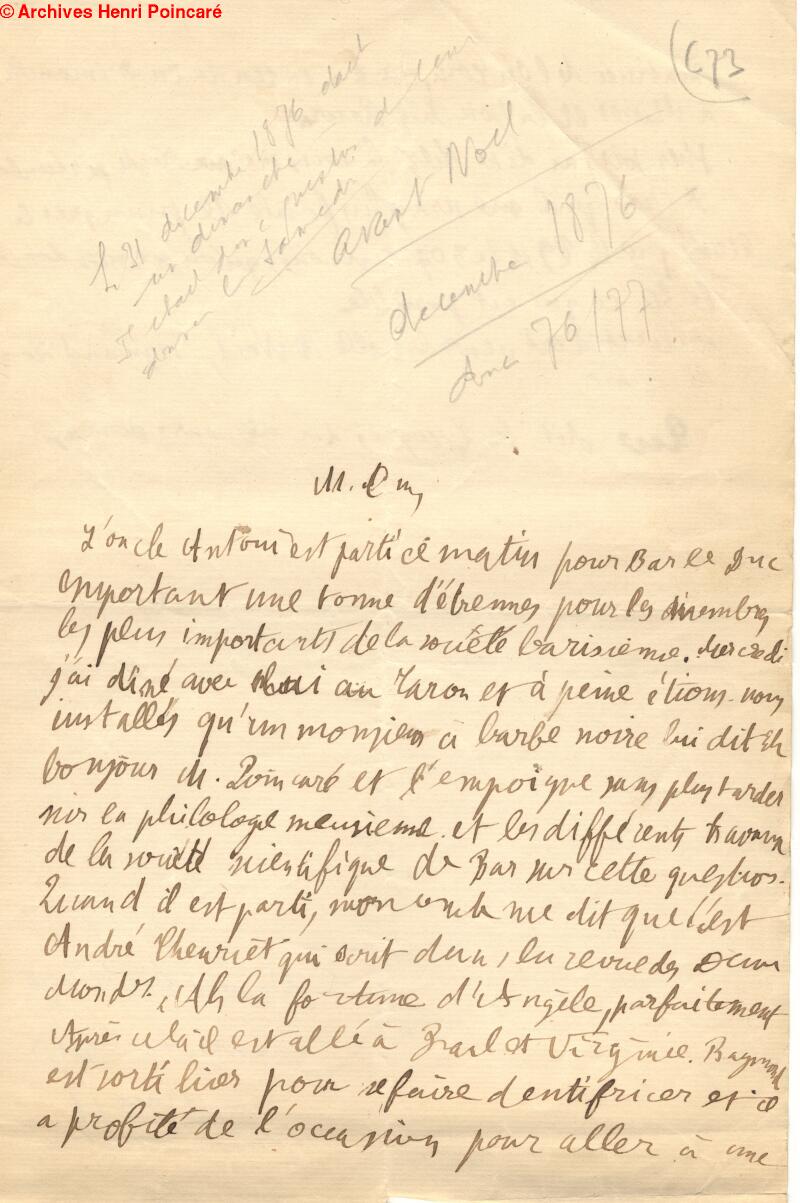 © Archives Henri Poincaré
C73
Le 31 decembre 1876 etait
un dimanche
Il etait donc question de
donner le samedi
avant Noel
decembre 1876
donc 76/77
M.
L'oncle Antoni est parti ce matin pour Bar le Duc
emportant une tonne d'étrennes pour les membres
les plus importants de la société barisienne. Mercredi
j'ai dîné avec lui au Taron et à peine étions-nous
installés qu'un monsieur à barbe noire lui dit Eh
bonjour M. Poincaré et l'empoigne sans plus tarder
sur la philologie meusienne et les différents travaux
de la société scientifique de Bar sur cette question.
Quand il est parti, mon oncle me dit que c'est
André Theuriet qui écrit dans la revue des Deux
Mondes. Ah la fortune d'Angèle, parfaitement
Après cela il est allé à Paul et Virginie. Raymond
est sorti hier pour se faire dentifricer et il
a profité de l'occasion pour aller à une